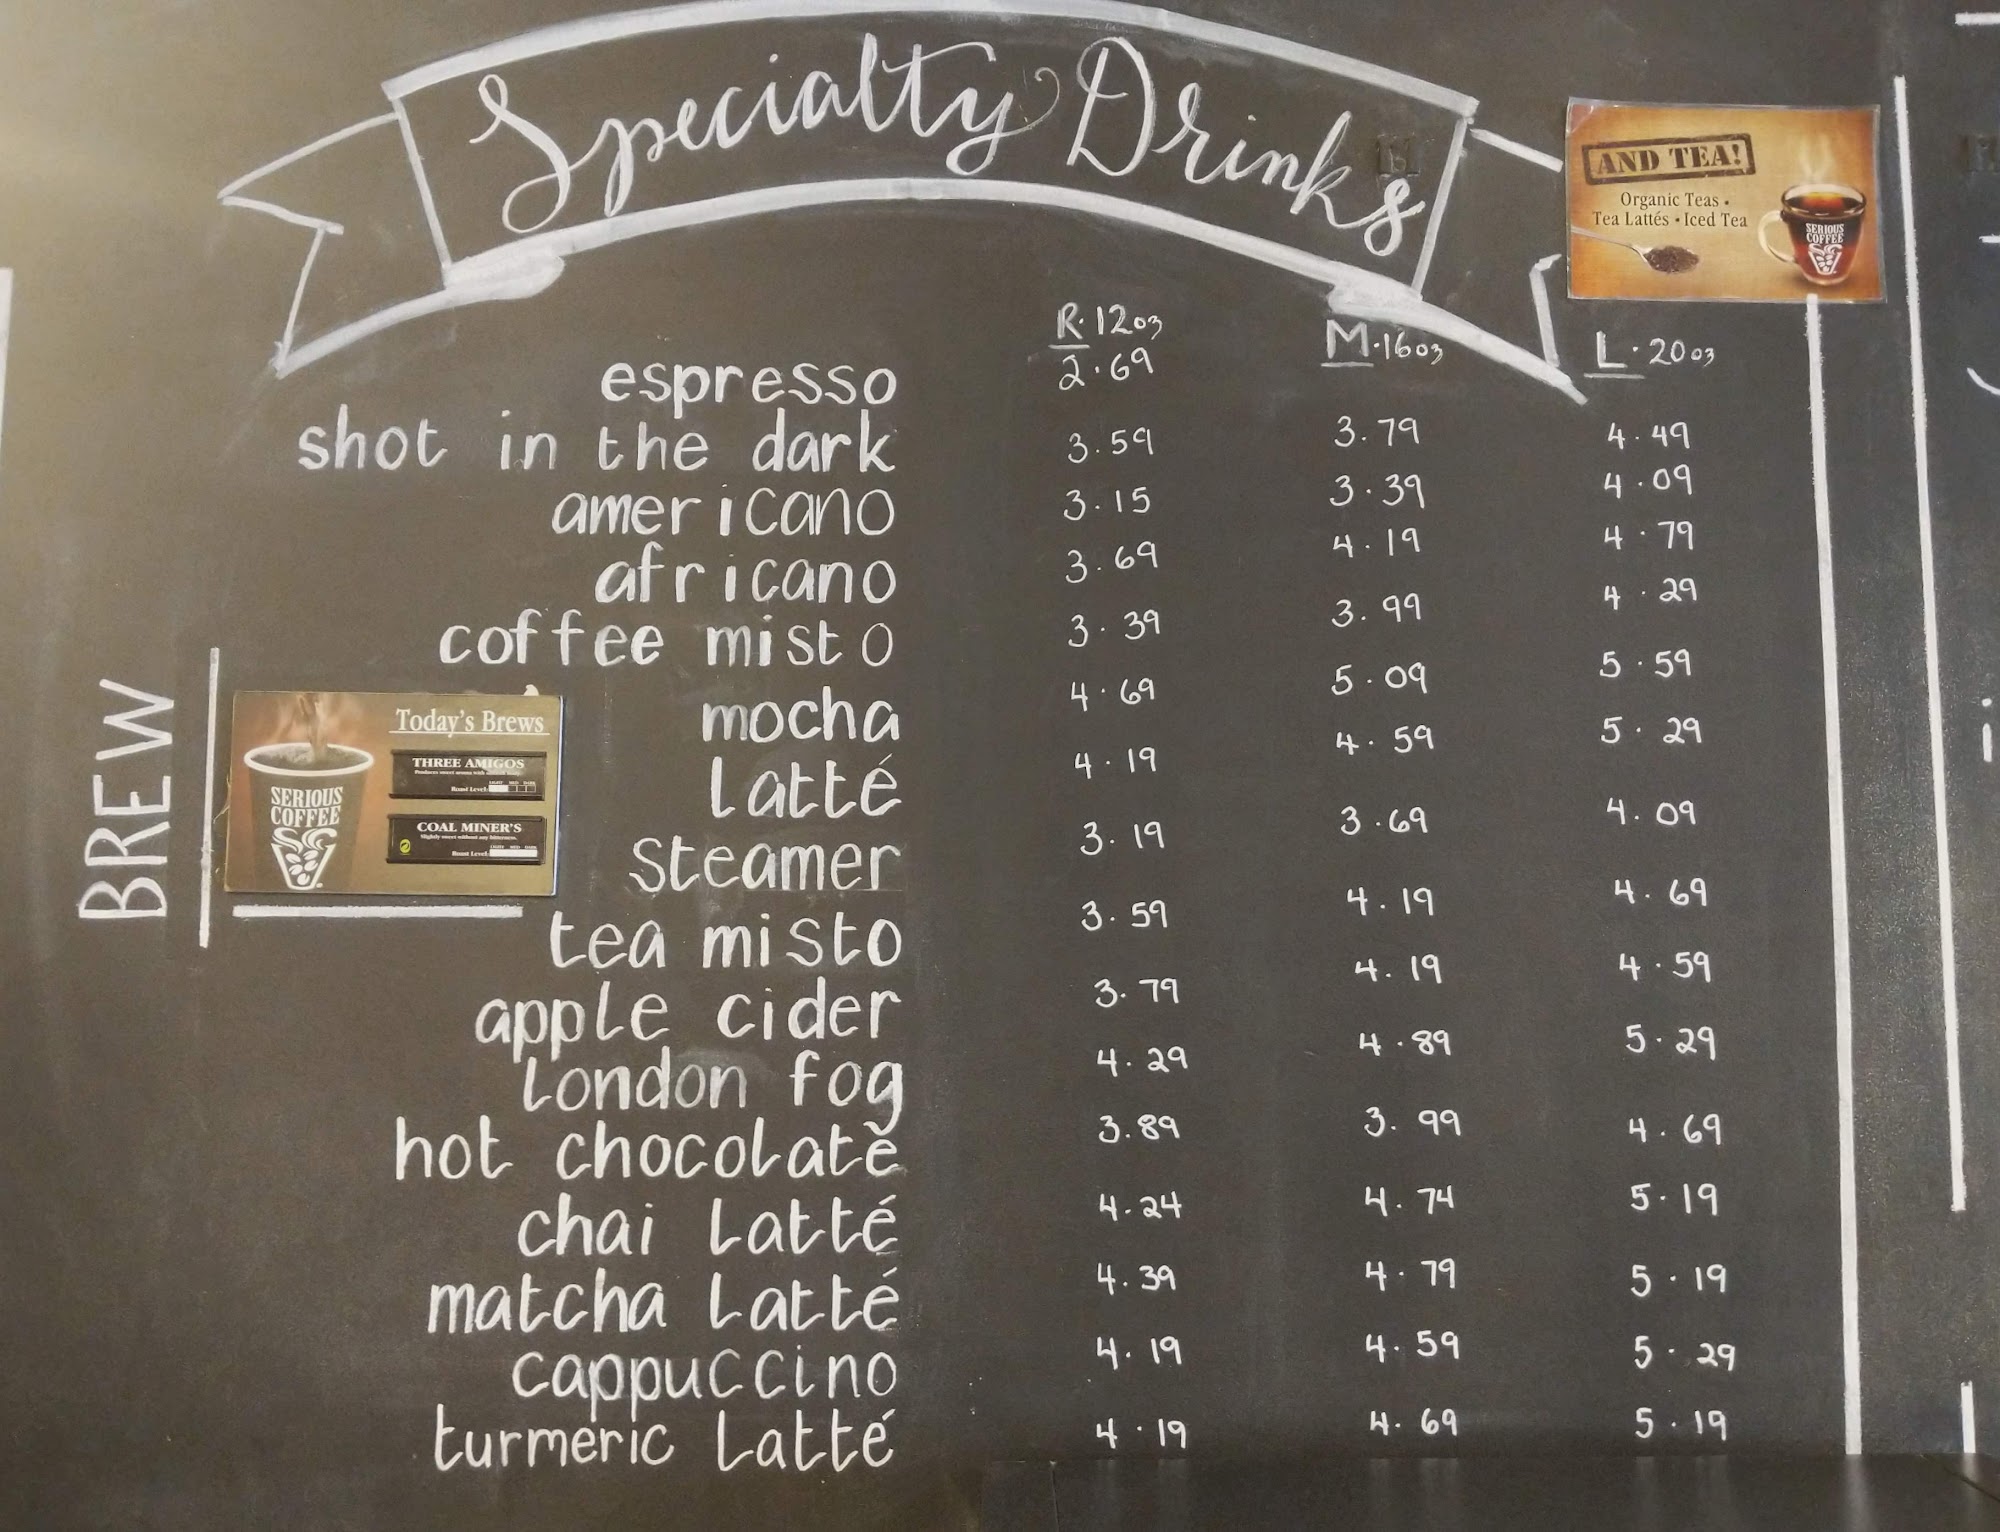 Specialty Drinks
AND TEA!
Organic Teas •
Tea Lattés • Iced Tea
SERIOUS
COFFEE
R. 12oz M. 16oz L. 20oz
espresso 2.69
shot in the dark 3.59 3.79 4.49
americano 3.15 3.39 4.09
africano 3.69 4.19 4.79
coffee misto 3.39 3.99 4.29
mocha 4.69 5.09 5.59
Latté 4.19 4.59 5.29
Steamer 3.19 3.69 4.09
tea misto 3.59 4.19 4.69
apple cider 3.79 4.19 4.59
London fog 4.29 4.89 5.29
hot chocolate 3.89 3.99 4.69
chai Latté 4.24 4.74 5.19
matcha Latté 4.39 4.79 5.19
cappuccino 4.19 4.59 5.29
turmeric Latté 4.19 4.69 5.19
BREW
Today's Brews
THREE AMIGOS
Roast Level:
LIGHT MED DARK
COAL MINER'S
Slightly sweet without any bitterness.
Roast Level:
LIGHT MED DARK
SERIOUS
COFFEE